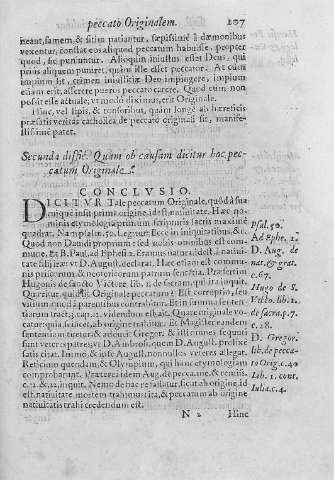 peccato Originalem. 207
neant, famem, & sitim patiuntur, sępissimè à dæmonibus
vexentur, constat eos aliquod peccatum habuisse, propter
quod, sic puniuntur. Alioquin iniustus esset Deus, qui
prius aliquem puniret, quàm ille esset peccator. At cum
impium sit, crimen iniustitiæ Deo impingere, impium
etiam erit, asserere pueros peccato carere. Quod cum non
possit esse actuale, vt modò diximus, erit Originale.
Hinc, vel lipis, & tonsoribus, quàm longè ab hæreticis
præfatis veritas catholica de peccato originali sit, manife-
stissimè patet.
Secunda diffic. Quam ob causam dicitur hoc pec-
catum Originale.
CONCLVSIO.
DICITVR Tale peccatum Originale, quòd à sua
niquè insit prima origine, id est, natiuitate. Hæc no-
minis etymologia primùm scripturis sacris maximè
quadrat. Nam psalm. 50. Legitur: Ecce in iniquitatibus, &c.
Quod non Dauidi proprium: sed nobis omnibus est com-
mune. Et B. Paul. ad Ephesi 2. Eramus natura, id est à natiui-
tate filij iræ: vt D. August. declarat. Hæc etiam est commu-
nis priscorum, & neotericorum patrum sententia. Præsertim
Hugonis de sancto Victore, lib. 1. de sacram. qui ita inquit.
Quæritur, quid sit Originale peccatum? Est corruptio, seu
vitium, quod à parentibus trahitur. Et in summa senten-
tiarum tract. 3. cap. 12. videndum est, ait. Quare originale vo-
catur: quia, scilicet, ab origine trahitur. Et Magister eandem
sententiam tenetur & adducit Gregor. & illiusmet sequun-
sunt veteris patres, vt D. Ambros. quem D. August. prolixè
satis citat. Immo, & ipse August. nonnullos veteres allegat.
Reticium quendam, & Olympium, qui hanc etymologiam
comprobant. Præterea idem Aug. de pecca. me. & remiss.
c. 11. & 12. inquit. Nemo de hac re fallatur, sicut ab origine id
est, natiuitate mortem trahimus ita, & peccatum ab origine
natiuitatis trahi credendum est.
N 2 Hinc
Psal. 50.
Ad Ephe. 2.
D. Aug. de
nat. & grat.
c. 67.
Hugo de S.
Victo. lib. 1.
de sacra. p. 7.
c. 28.
D. Gregor.
lib. de pecca-
to Orig. c. 40
Lib. 1. cont.
Iulia. c. 4.